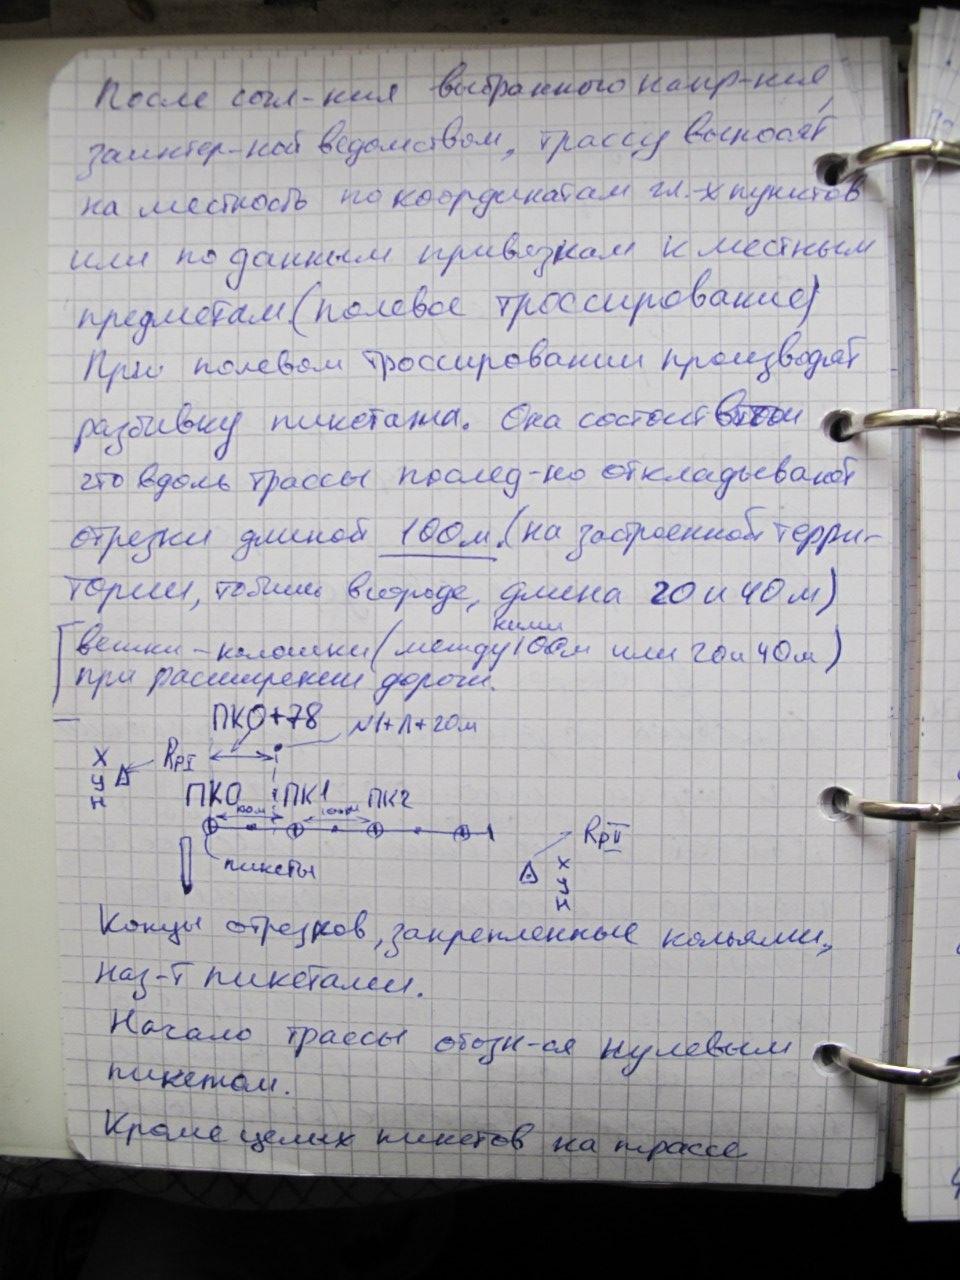 После согл-ния выбранного напр-ния,
заинтер-ной ведомством, трассу выносят
на местность по координатам гл.-х пунктов
или по данным привязкам к местным
предметам (полевое троссирование)
При полевом троссировании производят
разбивку пикетажа. Она состоит в том
что вдоль трассы послед-но откладывают
отрезки длиной 100м. (на застроенной терри-
тории, тобишь в городе, длина 20 и 40 м)
вешки - колошки (между ними 100м или 20 и 40м)
при расширении дороги.
ПК0+78
N1+Л+20м
X
У
H
Rp I
ПК0 ПК1 ПК2
100м 100м
Rp II
X
У
H
пикеты
Концы отрезков, закрепленные кольями,
наз-т пикетами.
Начало трассы обозн-ся нулевым
пикетом.
Кроме целых пикетов на трассе